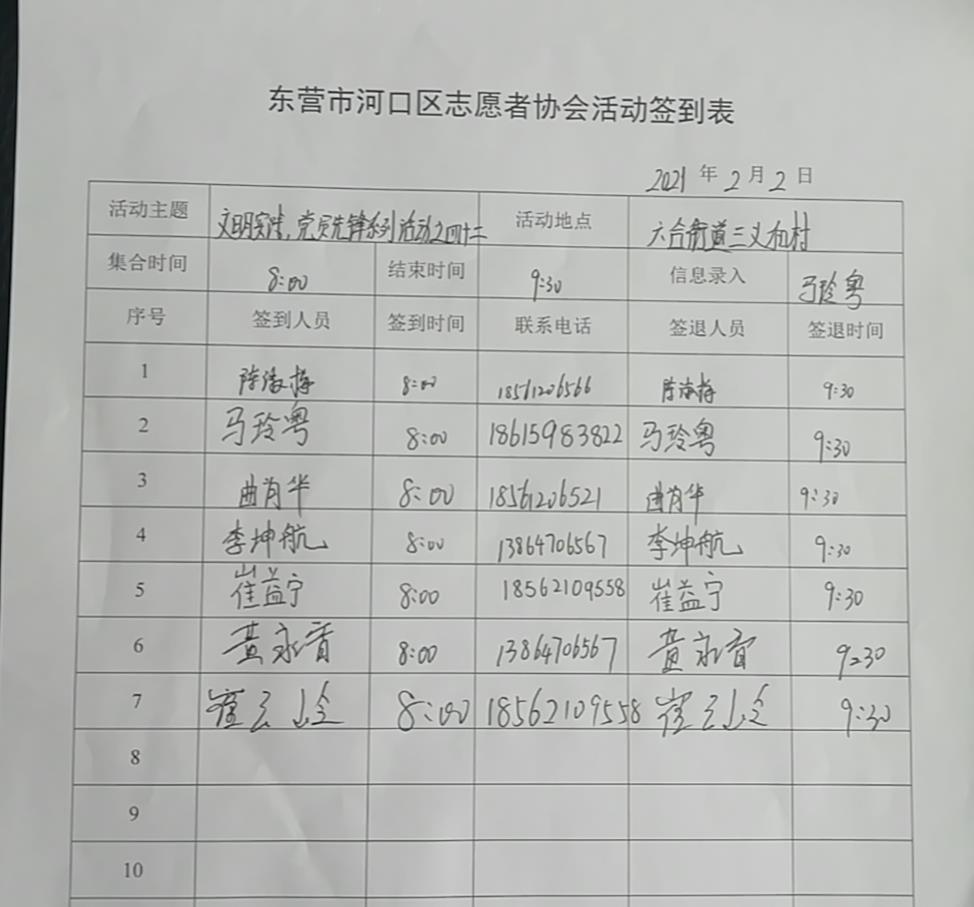 东营市河口区志愿者协会活动签到表
2021 年 2 月 2 日
活动主题 文明实,党员先锋系列活动之四十二 活动地点 六合街道三义和村
集合时间 8:00 结束时间 9:30 信息录入 马玲粤
序号 签到人员 签到时间 联系电话 签退人员 签退时间
1 陈海梅 8:00 18561206566 陈海梅 9:30
2 马玲粤 8:00 18615983822 马玲粤 9:30
3 曲肖华 8:00 18561206521 曲肖华 9:30
4 李坤航 8:00 13864706567 李坤航 9:30
5 崔益宁 8:00 18562109558 崔益宁 9:30
6 黄永香 8:00 13864706567 黄永香 9:30
7 崔云 8:00 18562109558 崔云 9:30
8
9
10